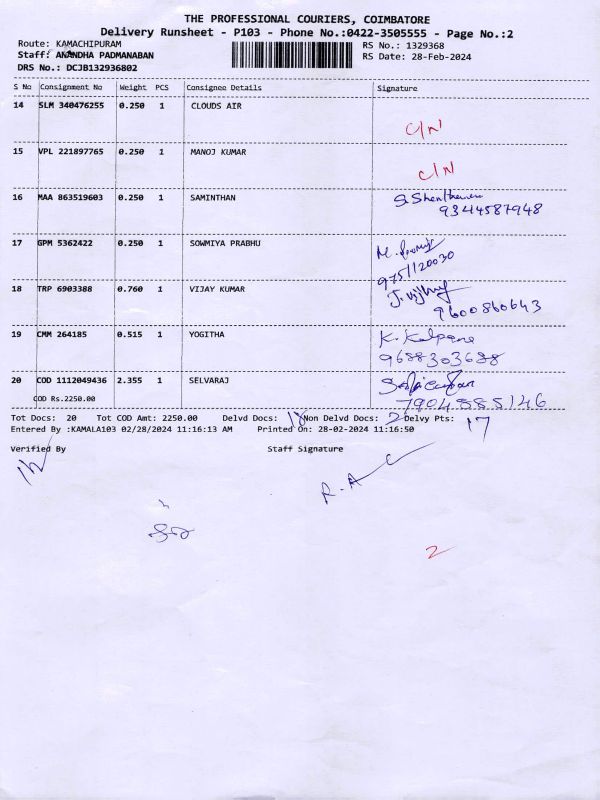 THE PROFESSIONAL COURIERS, COIMBATORE
Delivery Runsheet - P103 - Phone No.:0422-3505555 - Page No.:2
Route: KAMACHIPURAM RS No.: 1329368
Staff: ANANDHA PADMANABAN RS Date: 28-Feb-2024
DRS No.: DCJB132936802
S No Consignment No Weight PCS Consignee Details Signature
14 SLM 340476255 0.250 1 CLOUDS AIR
C/N
15 VPL 221897765 0.250 1 MANOJ KUMAR
C/N
16 MAA 863519603 0.250 1 SAMINTHAN
9344587948
17 GPM 5362422 0.250 1 SOWMIYA PRABHU
9751120030
18 TRP 6903388 0.760 1 VIJAY KUMAR
9600860643
19 CMM 264185 0.515 1 YOGITHA K. Kalpana
9688303688
20 COD 1112049436 2.355 1 SELVARAJ
COD Rs.2250.00 7904885146
Tot Docs: 20 Tot COD Amt: 2250.00 Delvd Docs: 18 Non Delvd Docs: 2 Delvy Pts: 17
Entered By :KAMALA103 02/28/2024 11:16:13 AM Printed On: 28-02-2024 11:16:50
Verified By Staff Signature
2